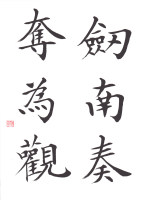 劔南奏
奪為觀